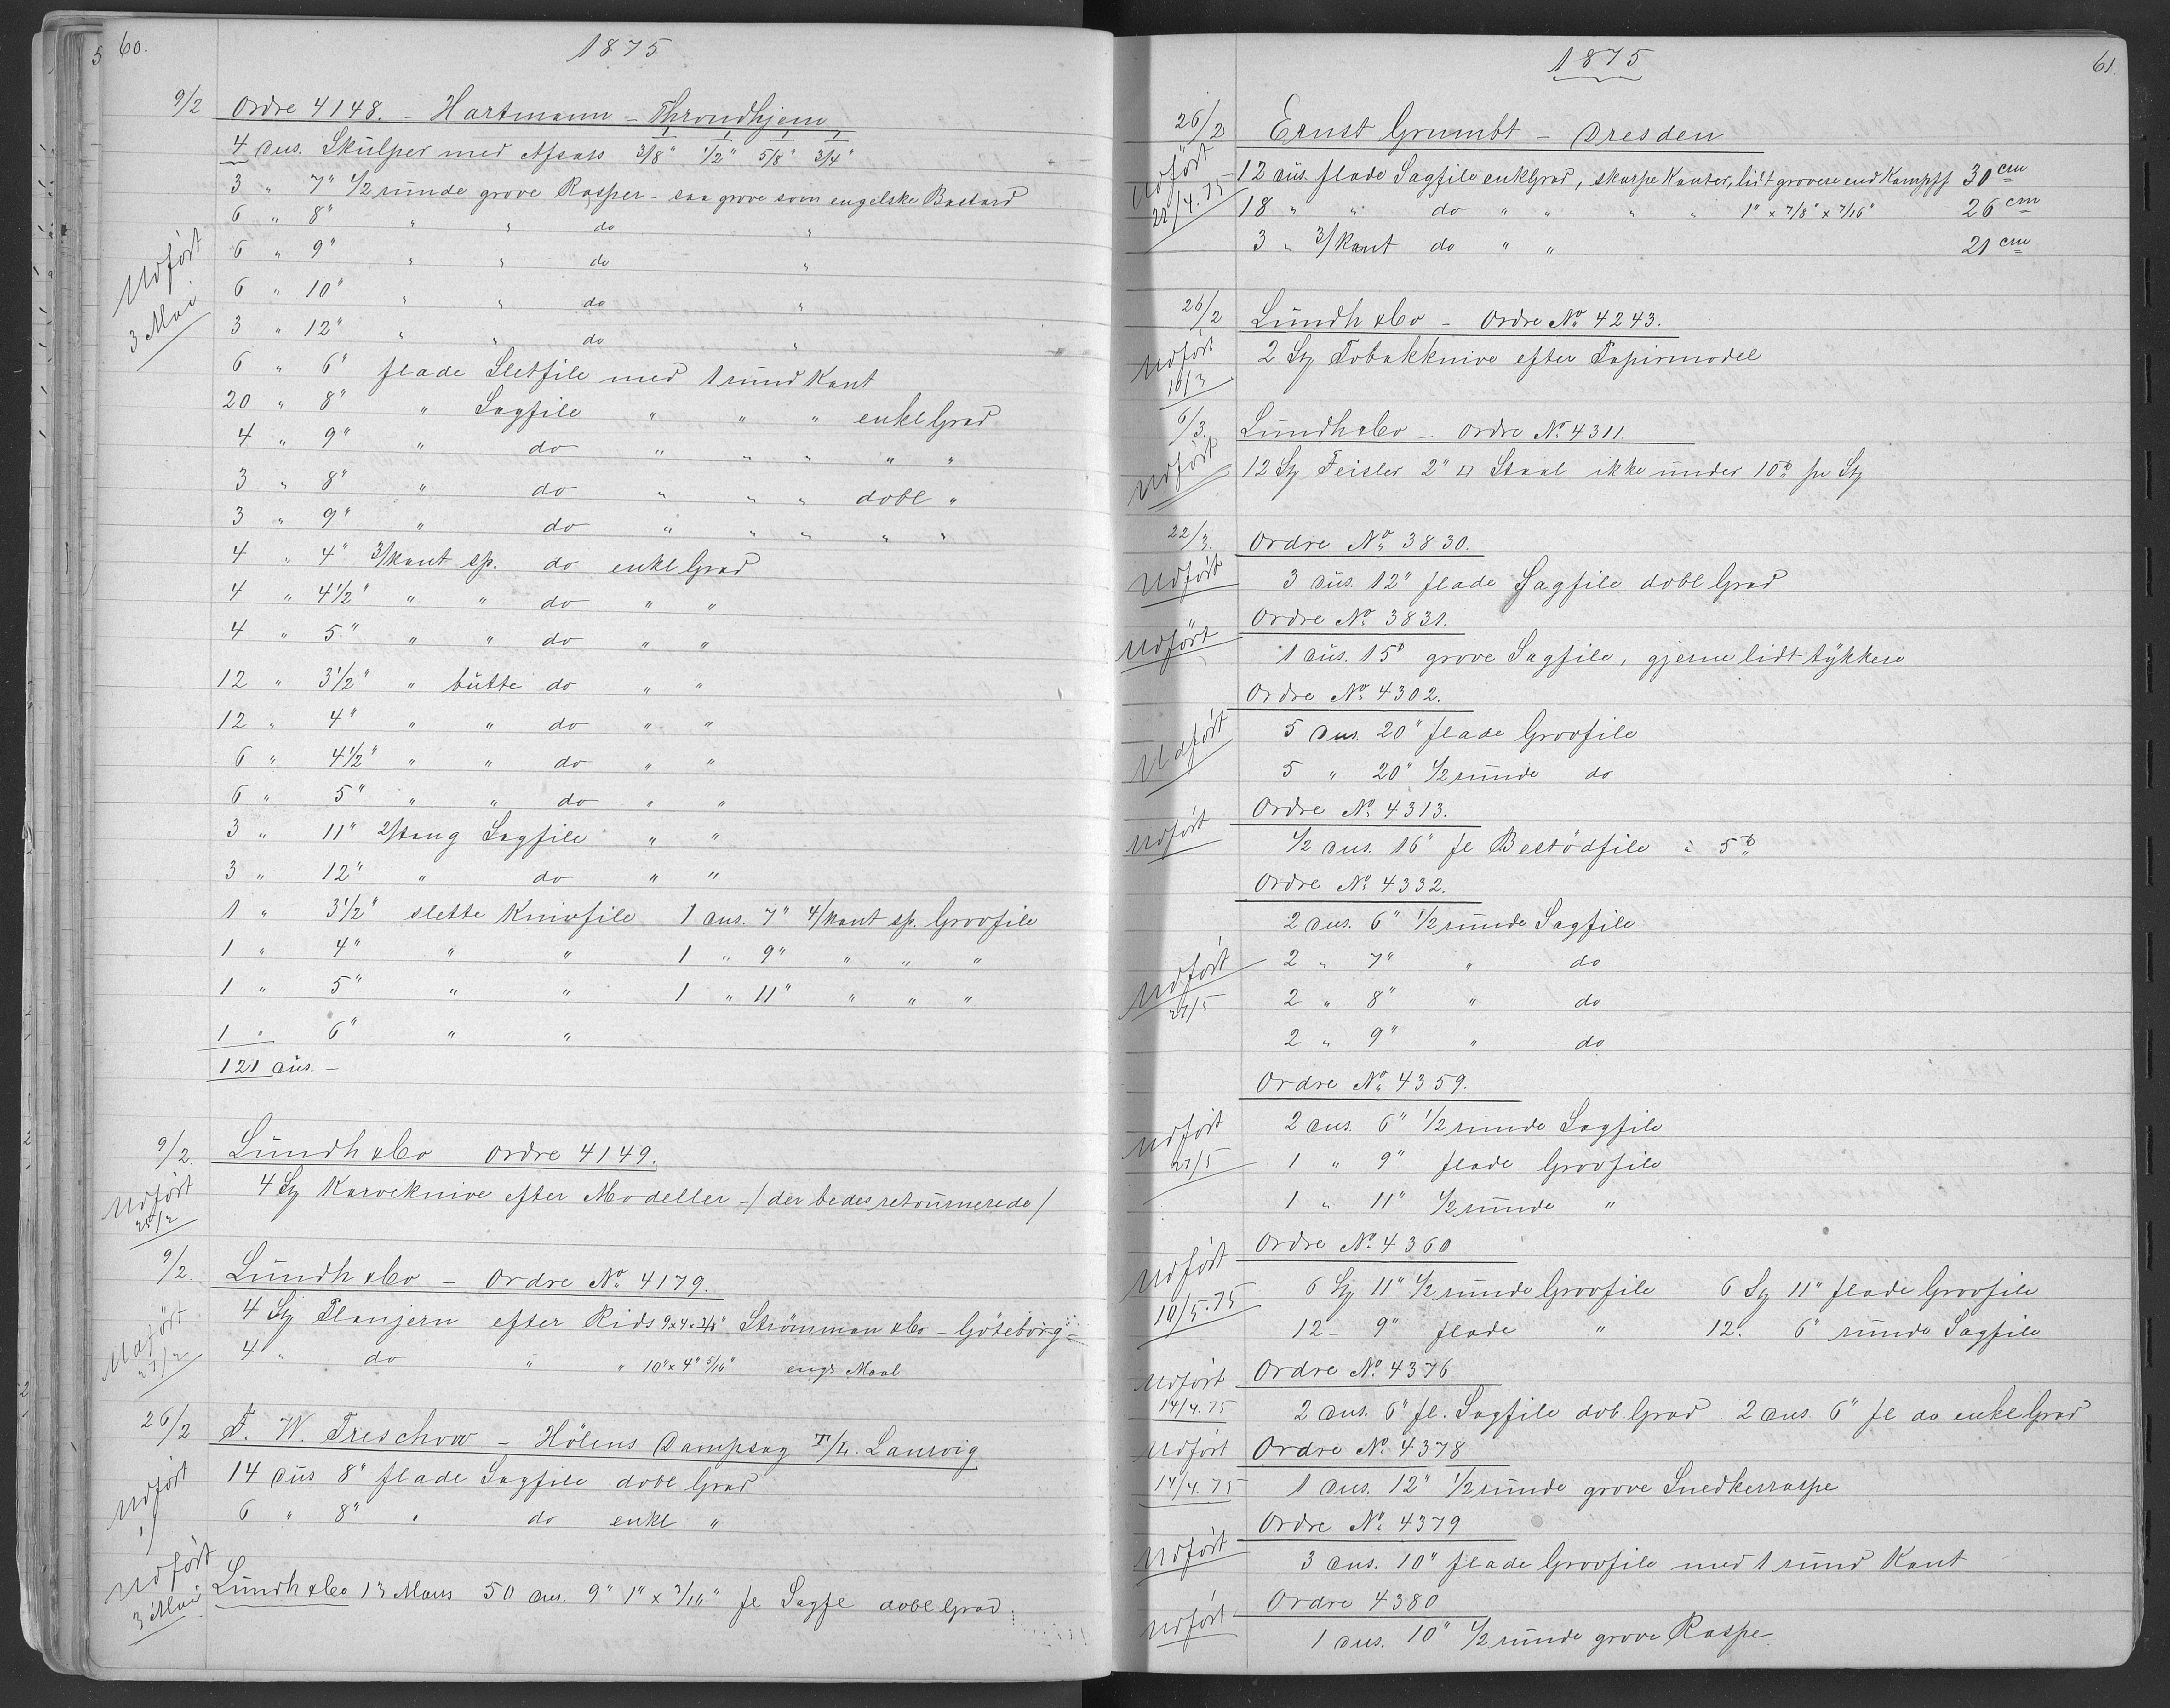 5 60. 1875
9/2 Ordre 4148. - Hartmann - Throndhjem
4 dus. Skülper med Afsats 3/8" 1/2" 5/8" 3/4"
3 " 7" 1/2 rūnde grove Rasper - saa grove som engelske Bastard
6 " 8" " " do "
6 " 9" " " do "
Udført 6 " 10" " " do "
3 Mai 3 " 12" " " do "
6 " 6" flade Sletfile med 1 rūnd Kant
20 " 8" " Sagfile " " " enkl Grad
4 " 9" " do " " " " "
3 " 8" " do " " " dobl "
3 " 9" " do " " " " "
4 " 4" 3/kant sp. do enkl Grad
4 " 4 1/2" " " do " "
4 " 5" " " do " "
12 " 3 1/2" " būtte do " "
12 " 4" " " do " "
6 " 4 1/2" " " do " "
6 " 5" " " do " "
3 " 11" 2/tang Sagfile " "
3 " 12" " do " "
1 " 3 1/2" slette Knivfile 1 dus. 7" 4/kant sp. Grovfile
1 " 4" " " 1 " 9" " " "
1 " 5" " " 1 " 11" " " "
1 " 6" " "
121 dūs. -
9/2. Lūndh & Co Ordre 4149.
Udført 25/2 4 Stz Karveknive efter Modeller - / der bedes retoūrnerede /
9/2. Lūndh & Co - Ordre No 4179.
Udført 27/2 4 Stz Planjern efter Rids 9x4x3/8" Strömman & Co - Göteborg -
4 " do " " 10" x 4" 5/16" engs Maal
26/2 F. W. Treschow - Hölens Dampsag T/L. Laurvig
Udført 14 dūs 8" flade Sagfile dobl Grad
6 " 8" " do enkl "
Udført 3 Mai Lūndh & Co 13 Mars 50 dus. 9" 1" x 3/16" fl Sagfl dobl Grad
1875 61.
26/2 Ernst Grumbt - Dresden
Udført 22/4.75 - 12 dūs. flade Sagfile enkl Grad, skarpe Kanter, lidt grovere end Kampff 30 cm
18 " " do " " " " 1" x 7/8" x 7/16" 26 cm
3 " 3/kant do " " 21 cm
26/2 Lūndh & Co - Ordre No 4243.
Udført 10/3 2 Stz Tobakknive efter Papirmodel
6/3. Lūndh & Co - Ordre No 4311.
Udført 12 Stz Feisler 2" □ Staal ikke ūnder 10 ℔ pr Stz
22/3. Ordre No 3830.
Udført 3 dūs. 12" flade Sagfile dobl Grad
Ordre No 3831.
Udført 1 dūs. 15" grove Sagfile, gjerne lidt tykkere
Ordre No 4302.
Udført 5 dus. 20" flade Grovfile
5 " 20" 1/2 rūnde do
Ordre No 4313.
Udført 1/2 dus. 16" fl Bestödfile à 5 ℔
Ordre No 4332.
2 dus. 6" 1/2 rūnde Sagfile
Udført 27/5 2 " 7" " do
2 " 8" " do
2 " 9" " do
Ordre No 4359.
Udført 27/5 2 dus. 6" 1/2 rūnde Sagfile
1 " 9" flade Grovfile
1 " 11" 1/2 rūnde "
Ordre No 4360
Udført 10/5.75 6 Stz 11" 1/2 rūnde Grovfile 6 Stz 11" flade Grovfile
12 - 9" flade " 12. 6" rūnde Sagfile
Udført 14/4.75 Ordre No 4376
2 dus. 6" fl. Sagfile dob. Grad. 2 dus. 6" fl do enkl Grad
Udført 14/4.75 Ordre No 4378
1 dus. 12" 1/2 rūnde grove Snedkerraspe
Ordre No 4379
Udført 3 dus. 10" flade Grovfile med 1 rūnd Kant
Ordre 4380
Udført 1 dus. 10" 1/2 rūnde grove Raspe